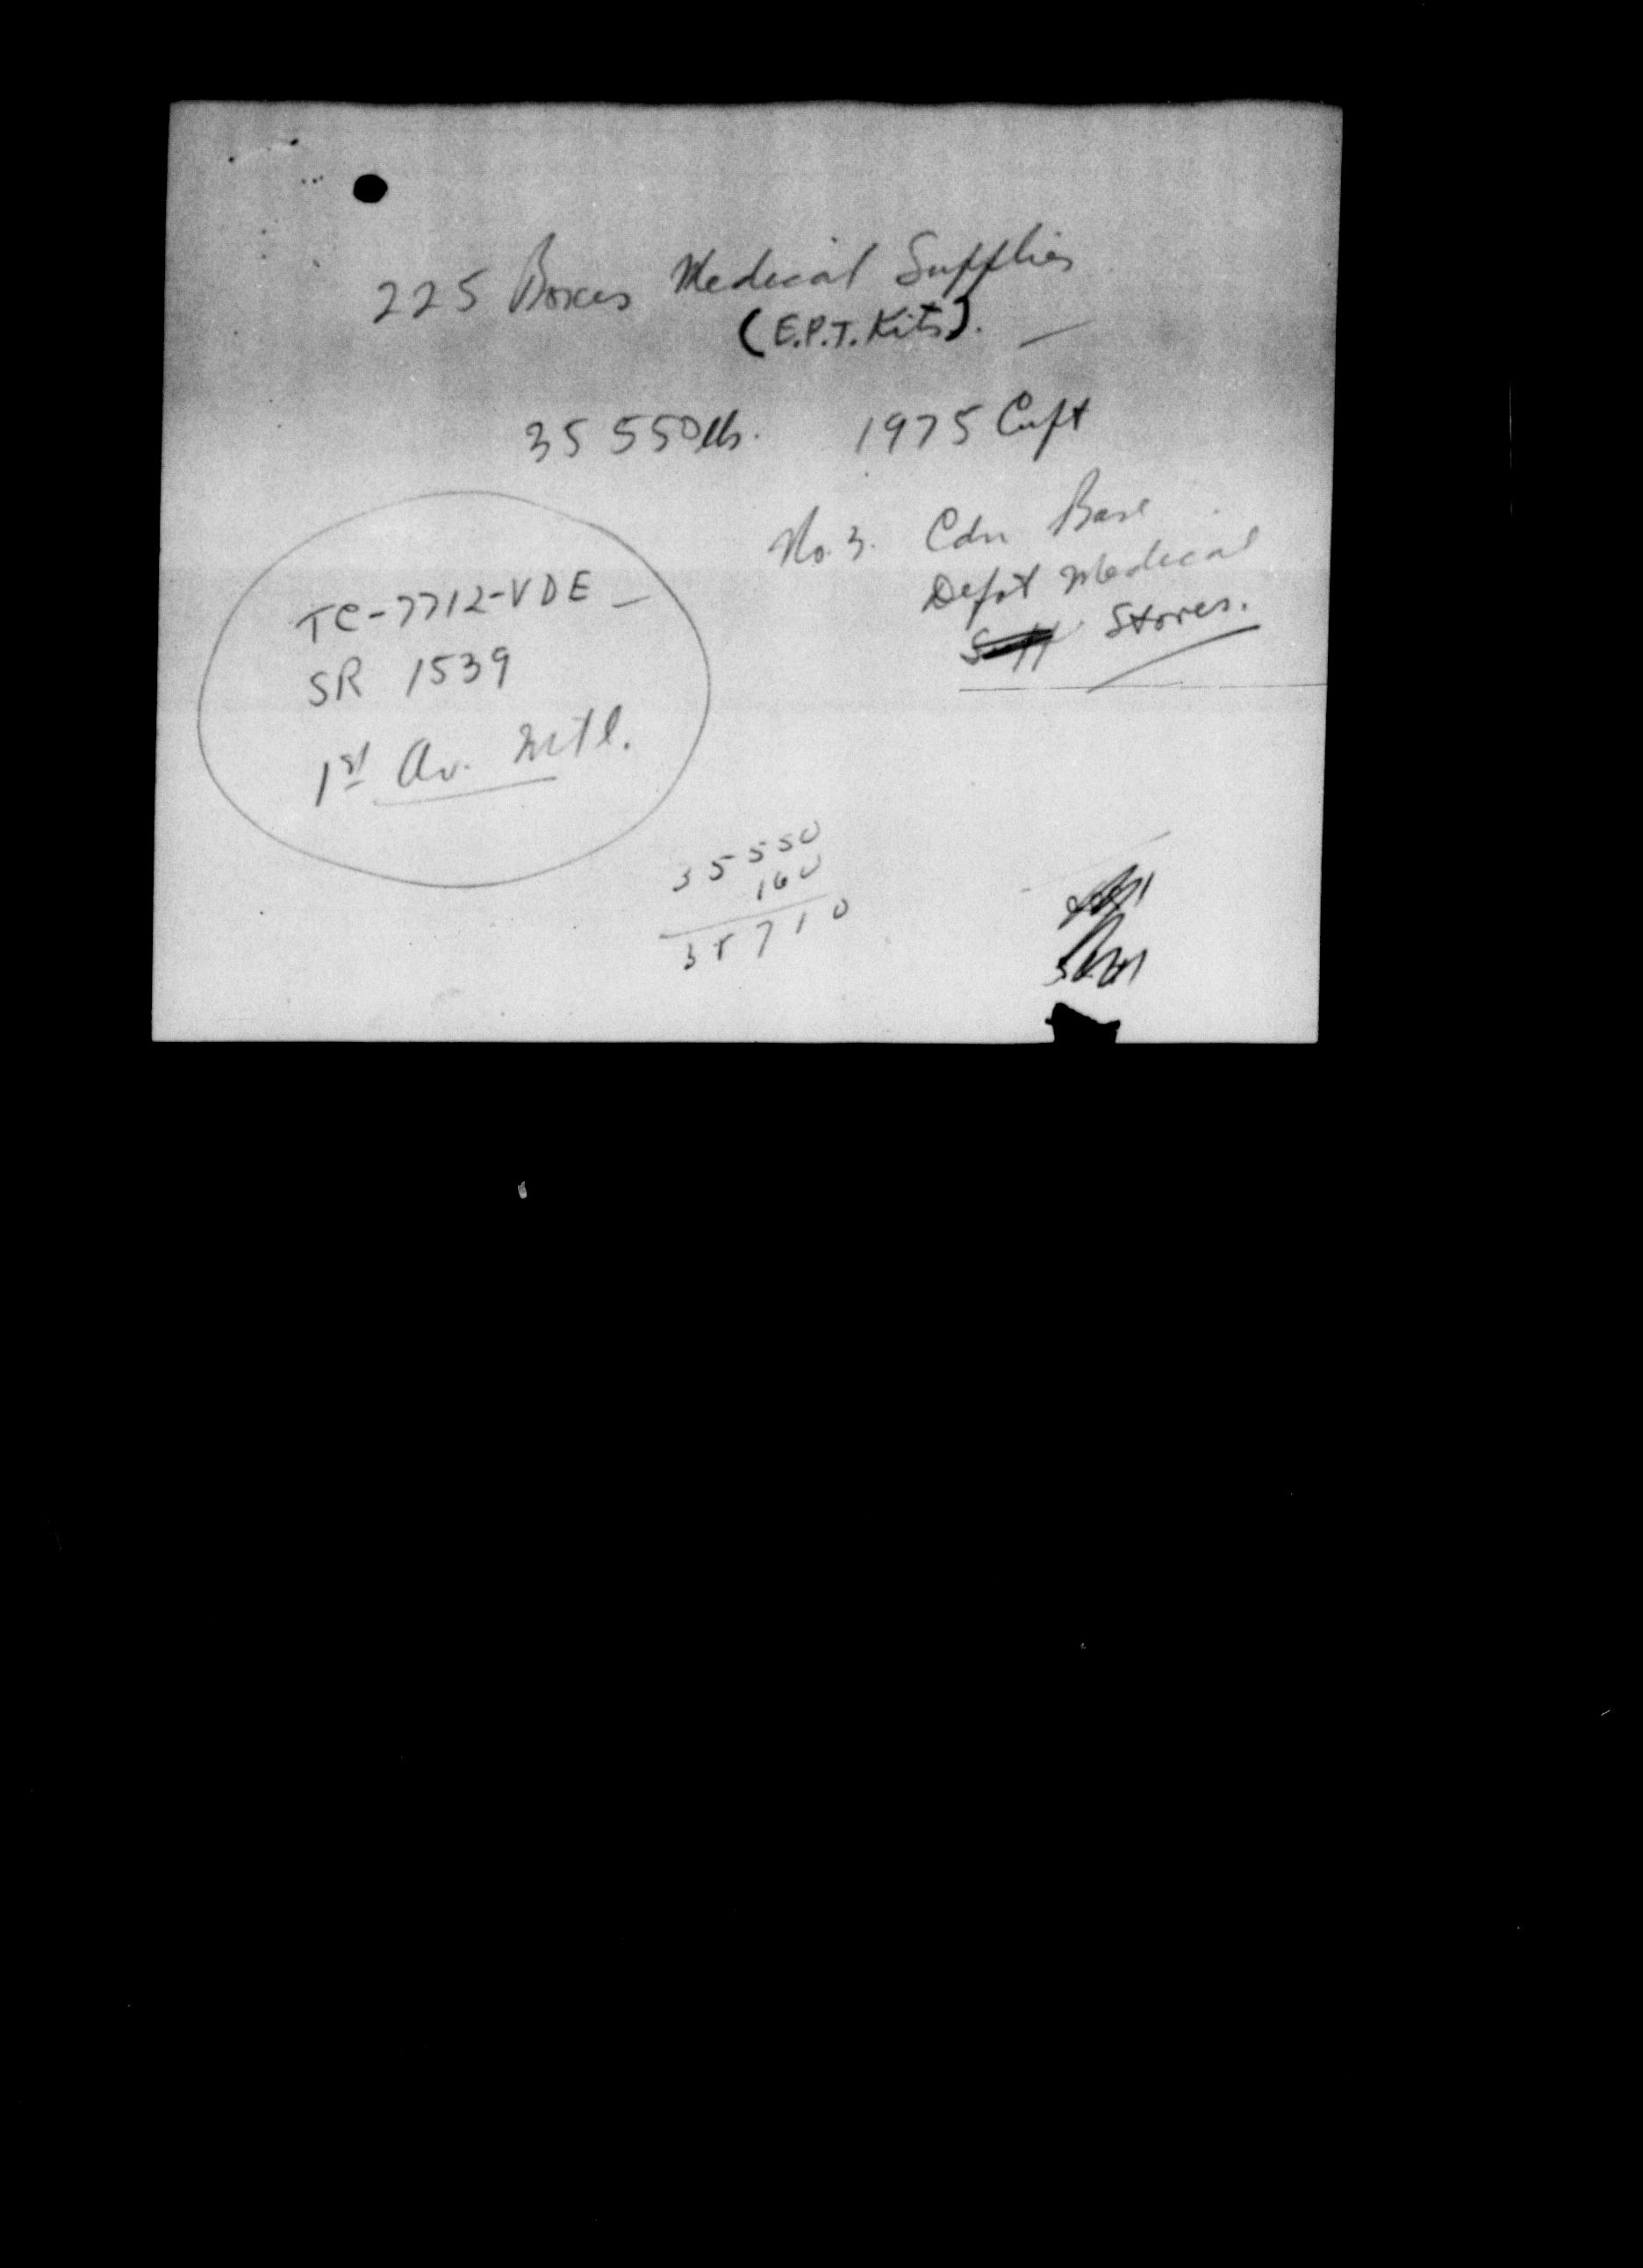 225 Boxes Medical Supplies
(E.P.T. Kits).
35 550 lbs. 1975 Cuft
No. 3. Cdn Base
Depot Medical
Stores.
TC-7712-VDE
SR 1539
1st Av. Mtl.
35550
160
35710